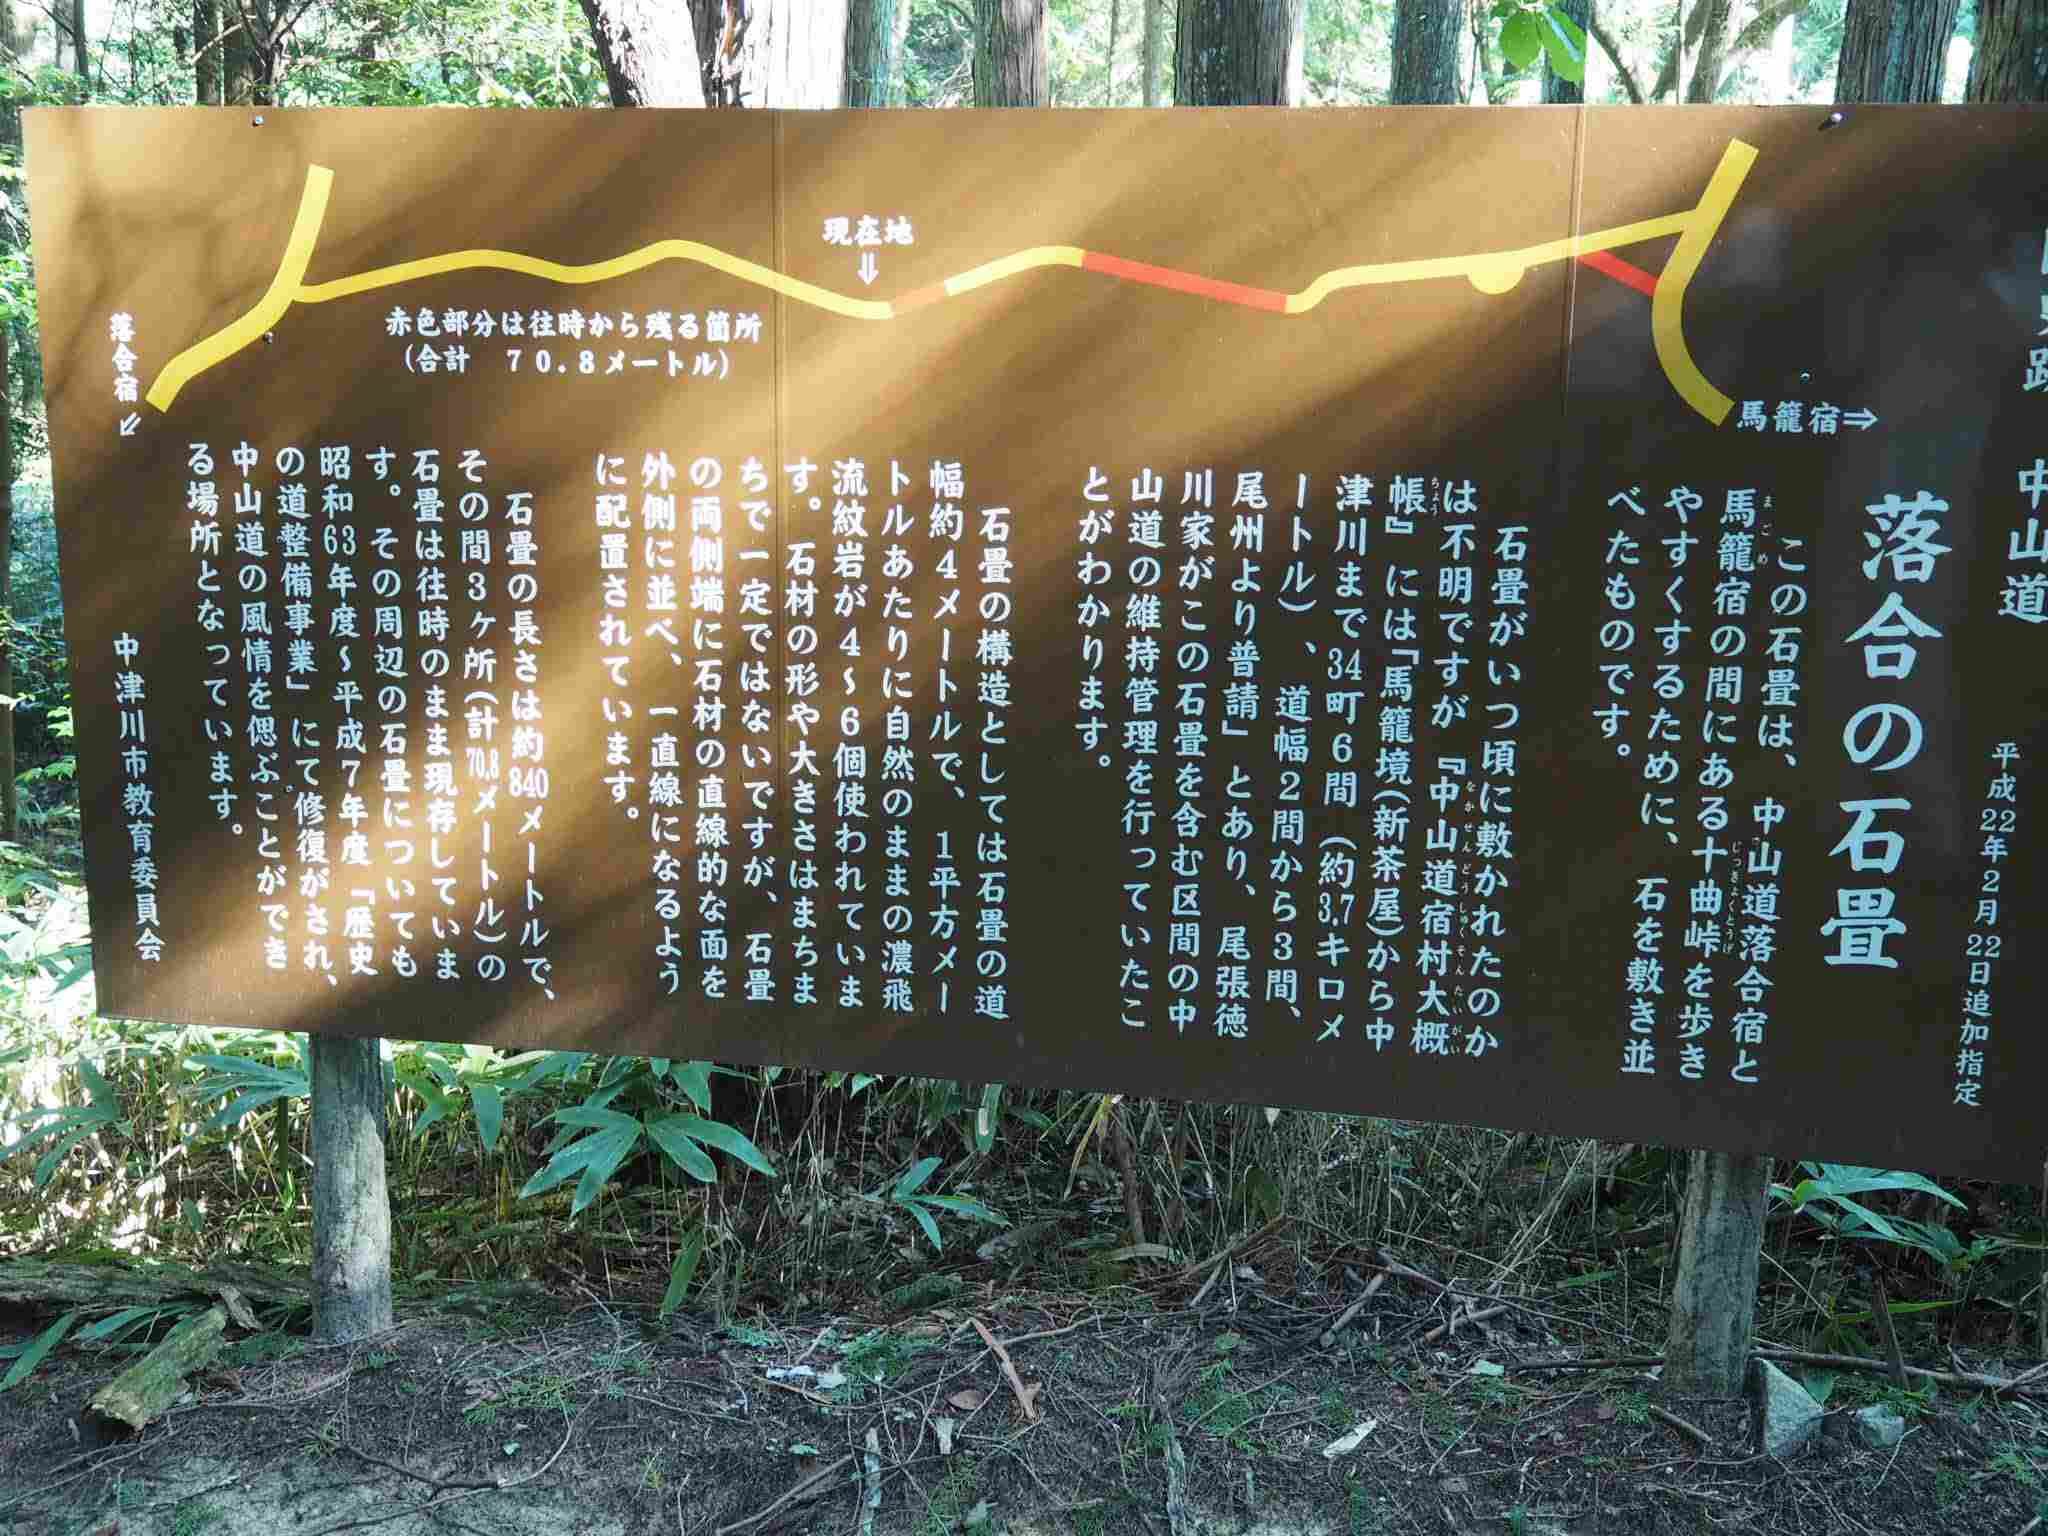 中山道
平成22年2月22日追加指定
落合の石畳
この石畳は、中山道落合宿と
馬籠宿の間にある十曲峠を歩き
やすくするために、石を敷き並
べたものです。
まごめ
じっきょくとうげ
石畳がいつ頃に敷かれたのか
は不明ですが『中山道宿村大概
帳』には「馬籠境(新茶屋)から中
津川まで34町6間(約3.7キロメ
ートル)、道幅2間から3間、
尾州より普請」とあり、尾張徳
川家がこの石畳を含む区間の中
山道の維持管理を行っていたこ
とがわかります。
なかせんどうしゅくそんたいがい
ちょう
石畳の構造としては石畳の道
幅約4メートルで、1平方メー
トルあたりに自然のままの濃飛
流紋岩が4～6個使われていま
す。石材の形や大きさはまちま
ちで一定ではないですが、石畳
の両側端に石材の直線的な面を
外側に並べ、一直線になるよう
に配置されています。
石畳の長さは約840メートルで、
その間3ヶ所(計70.8メートル)の
石畳は往時のまま現存していま
す。その周辺の石畳についても
昭和63年度～平成7年度「歴史
の道整備事業」にて修復がされ、
中山道の風情を偲ぶことができ
る場所となっています。
中津川市教育委員会
現在地
⇓
赤色部分は往時から残る箇所
(合計 70.8メートル)
落合宿⇙
馬籠宿⇒